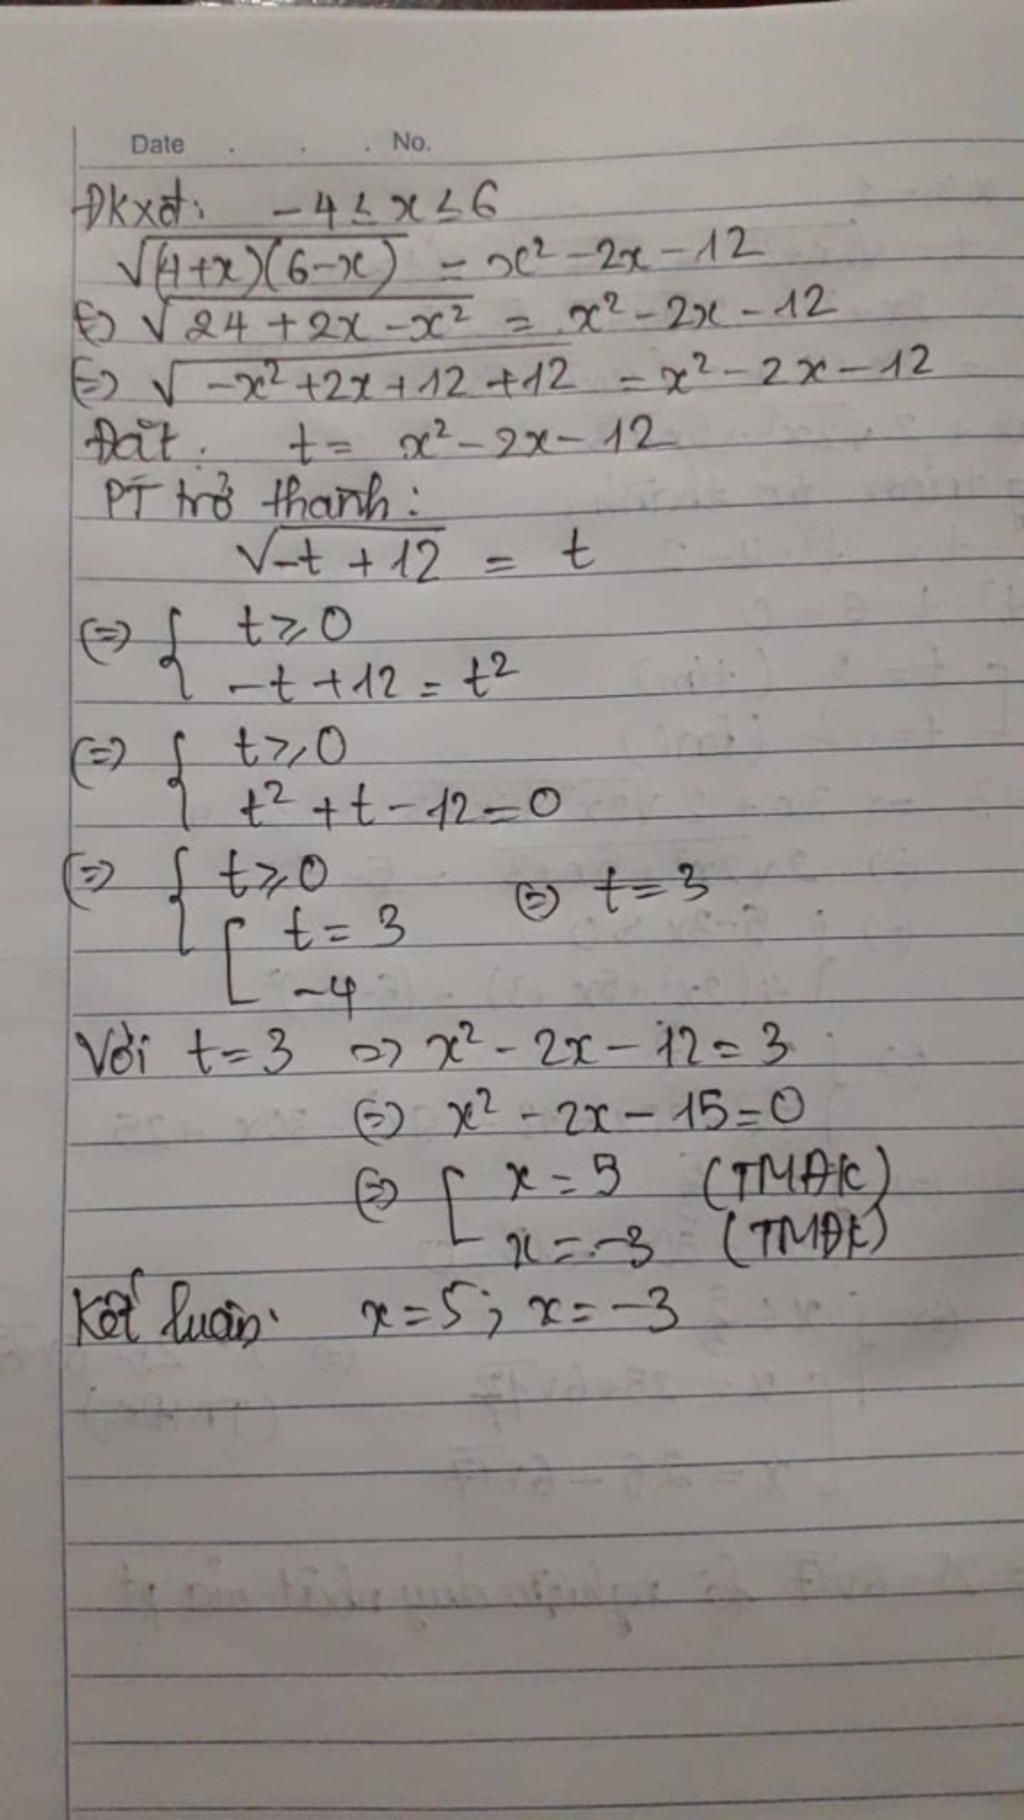 Date . . . No.
ĐKXĐ: -4 ≤ x ≤ 6
√(4+x)(6-x) = x² - 2x - 12
⇔ √24 + 2x - x² = x² - 2x - 12
⇔ √-x² + 2x + 12 + 12 = x² - 2x - 12
Đặt: t = x² - 2x - 12
PT trở thành:
√-t + 12 = t
⇔ { t ≥ 0
-t + 12 = t²
⇔ { t ≥ 0
t² + t - 12 = 0
⇔ { t ≥ 0 ⇔ t = 3
[ t = 3
-4
Với t = 3 => x² - 2x - 12 = 3
⇔ x² - 2x - 15 = 0
⇔ [ x = 5 (TMĐK)
x = -3 (TMĐK)
Kết luận: x = 5; x = -3